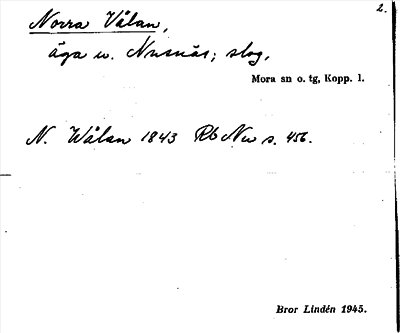 2.
Norra Vålan,
äga u. Nusnäs; skog,
Mora sn o. tg, Kopp. l.
N. Wålan 1843 Rb Nu s. 456.
Bror Lindén 1945.